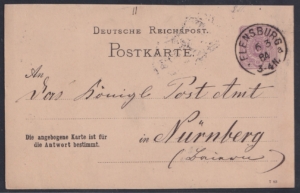 DEUTSCHE REICHSPOST.
POSTKARTE.
FLENSBURG
6/3
84
3-4N.
An
Das Königl Post Amt
in Nürnberg
(Baiern)
Die angebogene Karte ist für
die Antwort bestimmt.